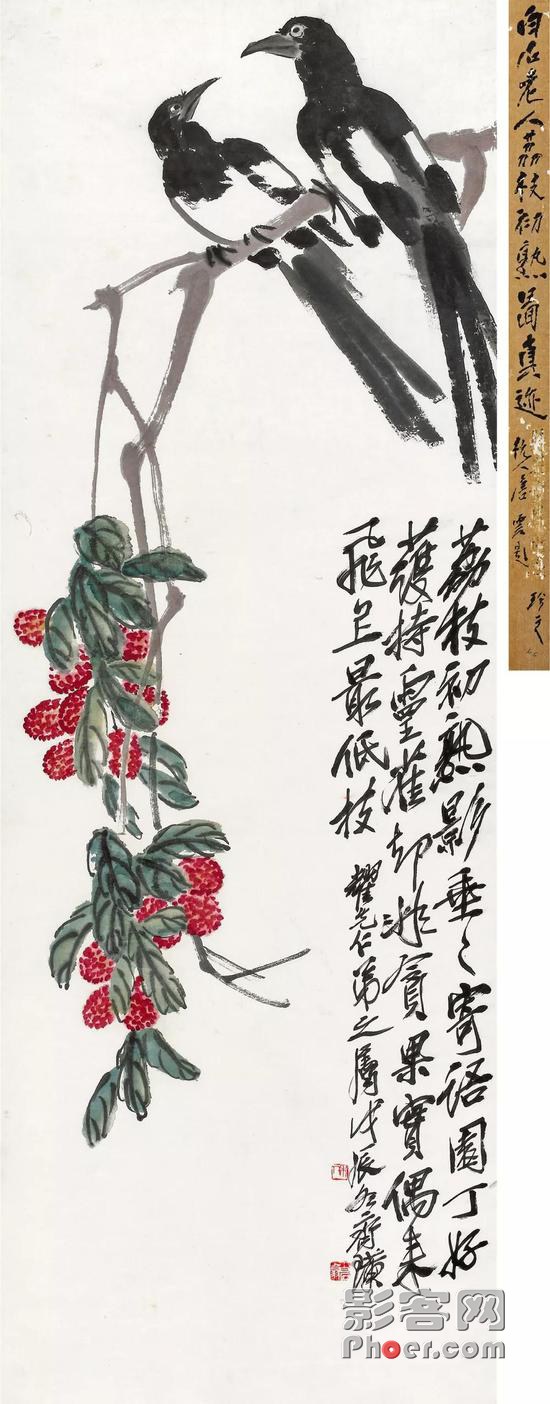 白石老人荔枝初熟图真迹
杭人唐云题
荔枝初熟影垂垂寄语园丁好
护持灵雀却非贪果实偶来
飞上最低枝
耀先仁弟之属戊辰冬齐璜
影客网
Phoer.com